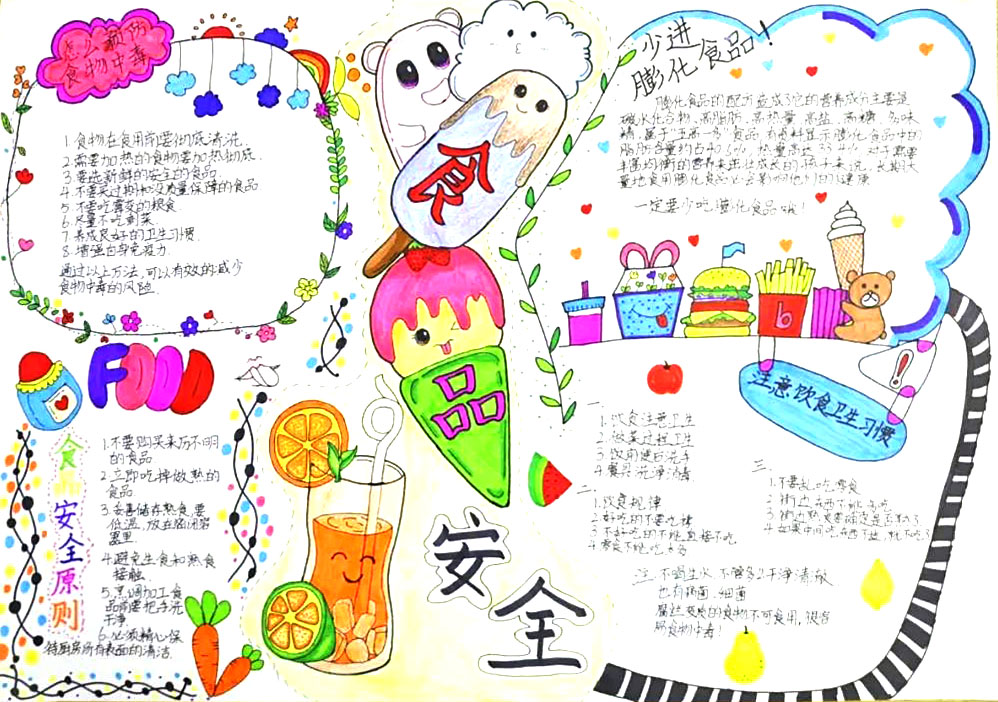 怎么预防
食物中毒
1.食物在食用前要彻底清洗.
2.需要加热的食物要加热彻底.
3.要选新鲜的安全的食品
4.不要买过期和没质量保障的食品
5.不要吃霉变的粮食.
6.尽量不吃剩菜.
7.养成良好的卫生习惯.
8.增强自身免疫力.
通过以上方法,可以有效的减少
食物中毒的风险.
FOOD
食品安全原则
1.不要购买来历不明
的食品
2.立即吃掉做熟的
食品
3.妥善储存熟食,要
低温,放在密闭容
器里
4.避免生食和熟食
接触.
5.烹调加工食
品前要把手洗
干净
6.必须精心保
持厨房所有表面的清洁.
食
品
安
全
少进
膨化食品!
膨化食品的配方
碳水化合物、高脂肪、高热量、高盐、高糖、多味
精,属于"五高一多"食品.有资料显示膨化食品中的
脂肪含量约占40.6%,热量高达33.4%.对于需要
丰富均衡的营养来茁壮成长的孩子来说,长期大
量地食用膨化食品必会影响他们的健康
一定要少吃膨化食品哦!
b
注意饮食卫生习惯
一、
1.饮食注意卫生
2.做菜过程卫生
3.饮用
4.餐具洗净消毒
二、
1.饮食规律
2.好吃的不要吃
3.不好吃的不挑
4.零食不挑
三、
1.不要乱吃零食
2.街边东西不
注:不喝生水,不管多么干净清澈
也有病菌、细菌
腐烂变质的食物不可食用,很容
易食物中毒!